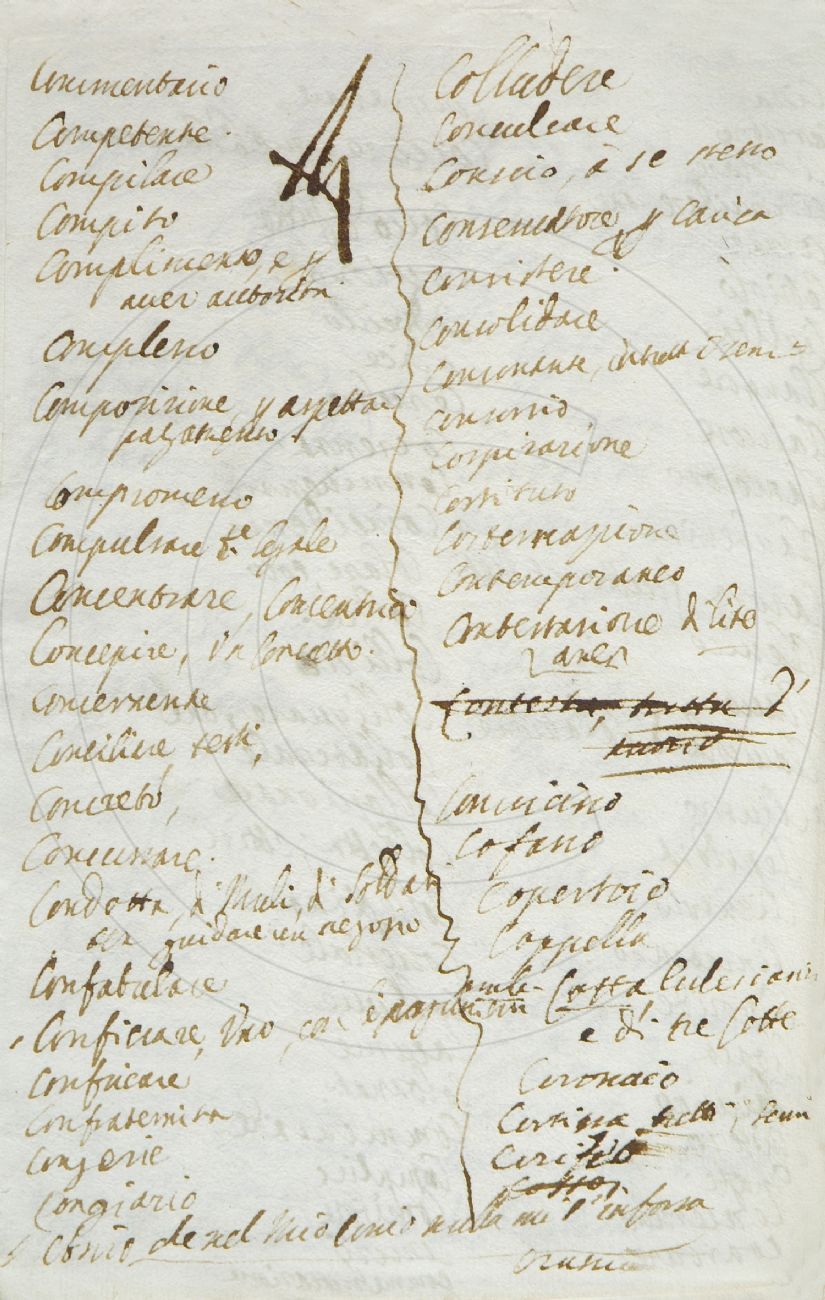 Commentario
Competente.
Compilare
Compito
Complimento, e p
aver autorità.
Complesso
Composizione, p aspettar
pagamento.
Compromesso
Compulsare legale
Concentrare, Concentrici
Concepire, in Concetto.
Concernente
Conciliare testi,
Concreto,
Concinnare.
Condotta, di Muli, di Soldati
guidare un negozio
Confabulare
Conficiare, Uno, con
Confricare
Confraternita
Congerie
Congiario
Conio che nel mio Conio nulla mi s'inforsa
Colludere
Conculcare
Conscio, à se stesso
Conservatore, p carica
Consistere.
Consolidare
Consonante,
Consorzio
Cospirazione
Costituto
Costernazione
Contemporaneo
Contestazione di lite
Contesta,
Convicino
Cofano
Copertoio
Cappella
Cotta
e di tre Cotte
Coronaio
Cortina
Corifeo